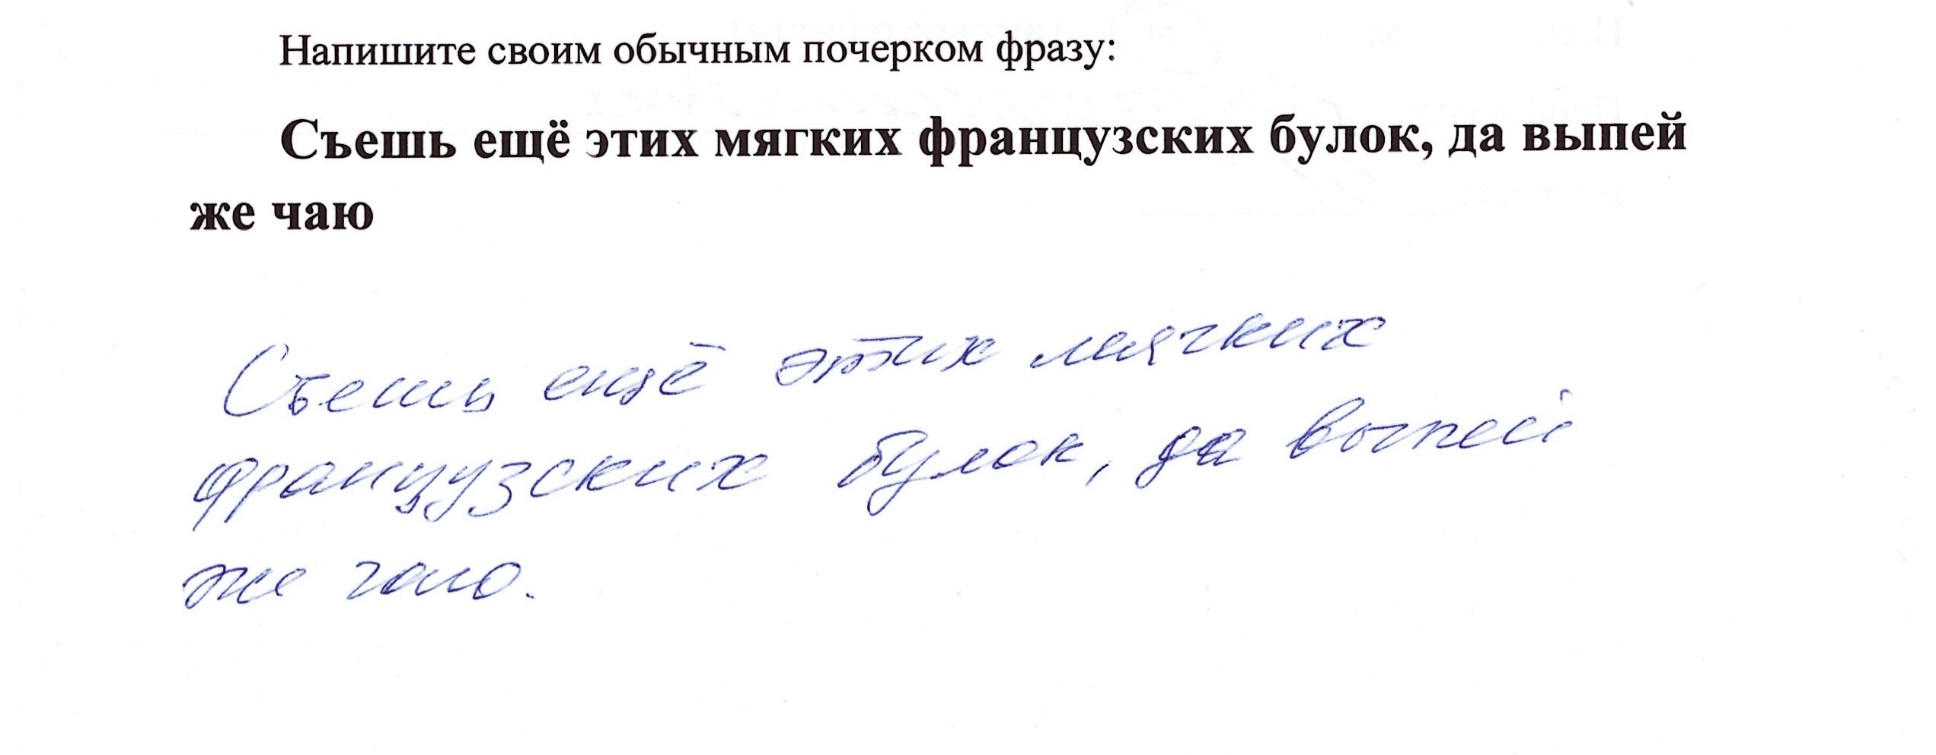 Напишите своим обычным почерком фразу:
Съешь ещё этих мягких французских булок, да выпей
же чаю
Съешь ещё этих мягких
французских булок, да выпей
же чаю.